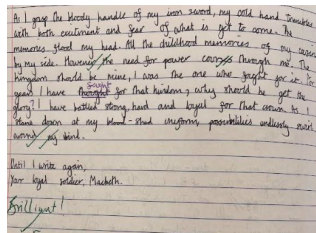 As I grasp the bloody handle of my iron sword, my cold hand trembles
with both excitement and fear of what is yet to come. The
memories flood my head. All the childhood memories of my
by my side. However, the need for power through me. The
kingdom should be mine, I was the one who fought for it. For
years I have fought for that kingdom, why should he get the
glory? I have battled strong, hard and loyal for that crown. As I
stand down at my blood-shed uniform, possibilities endlessly swirl
around my mind.
Until I write again,
Your loyal soldier, Macbeth.
Brilliant!